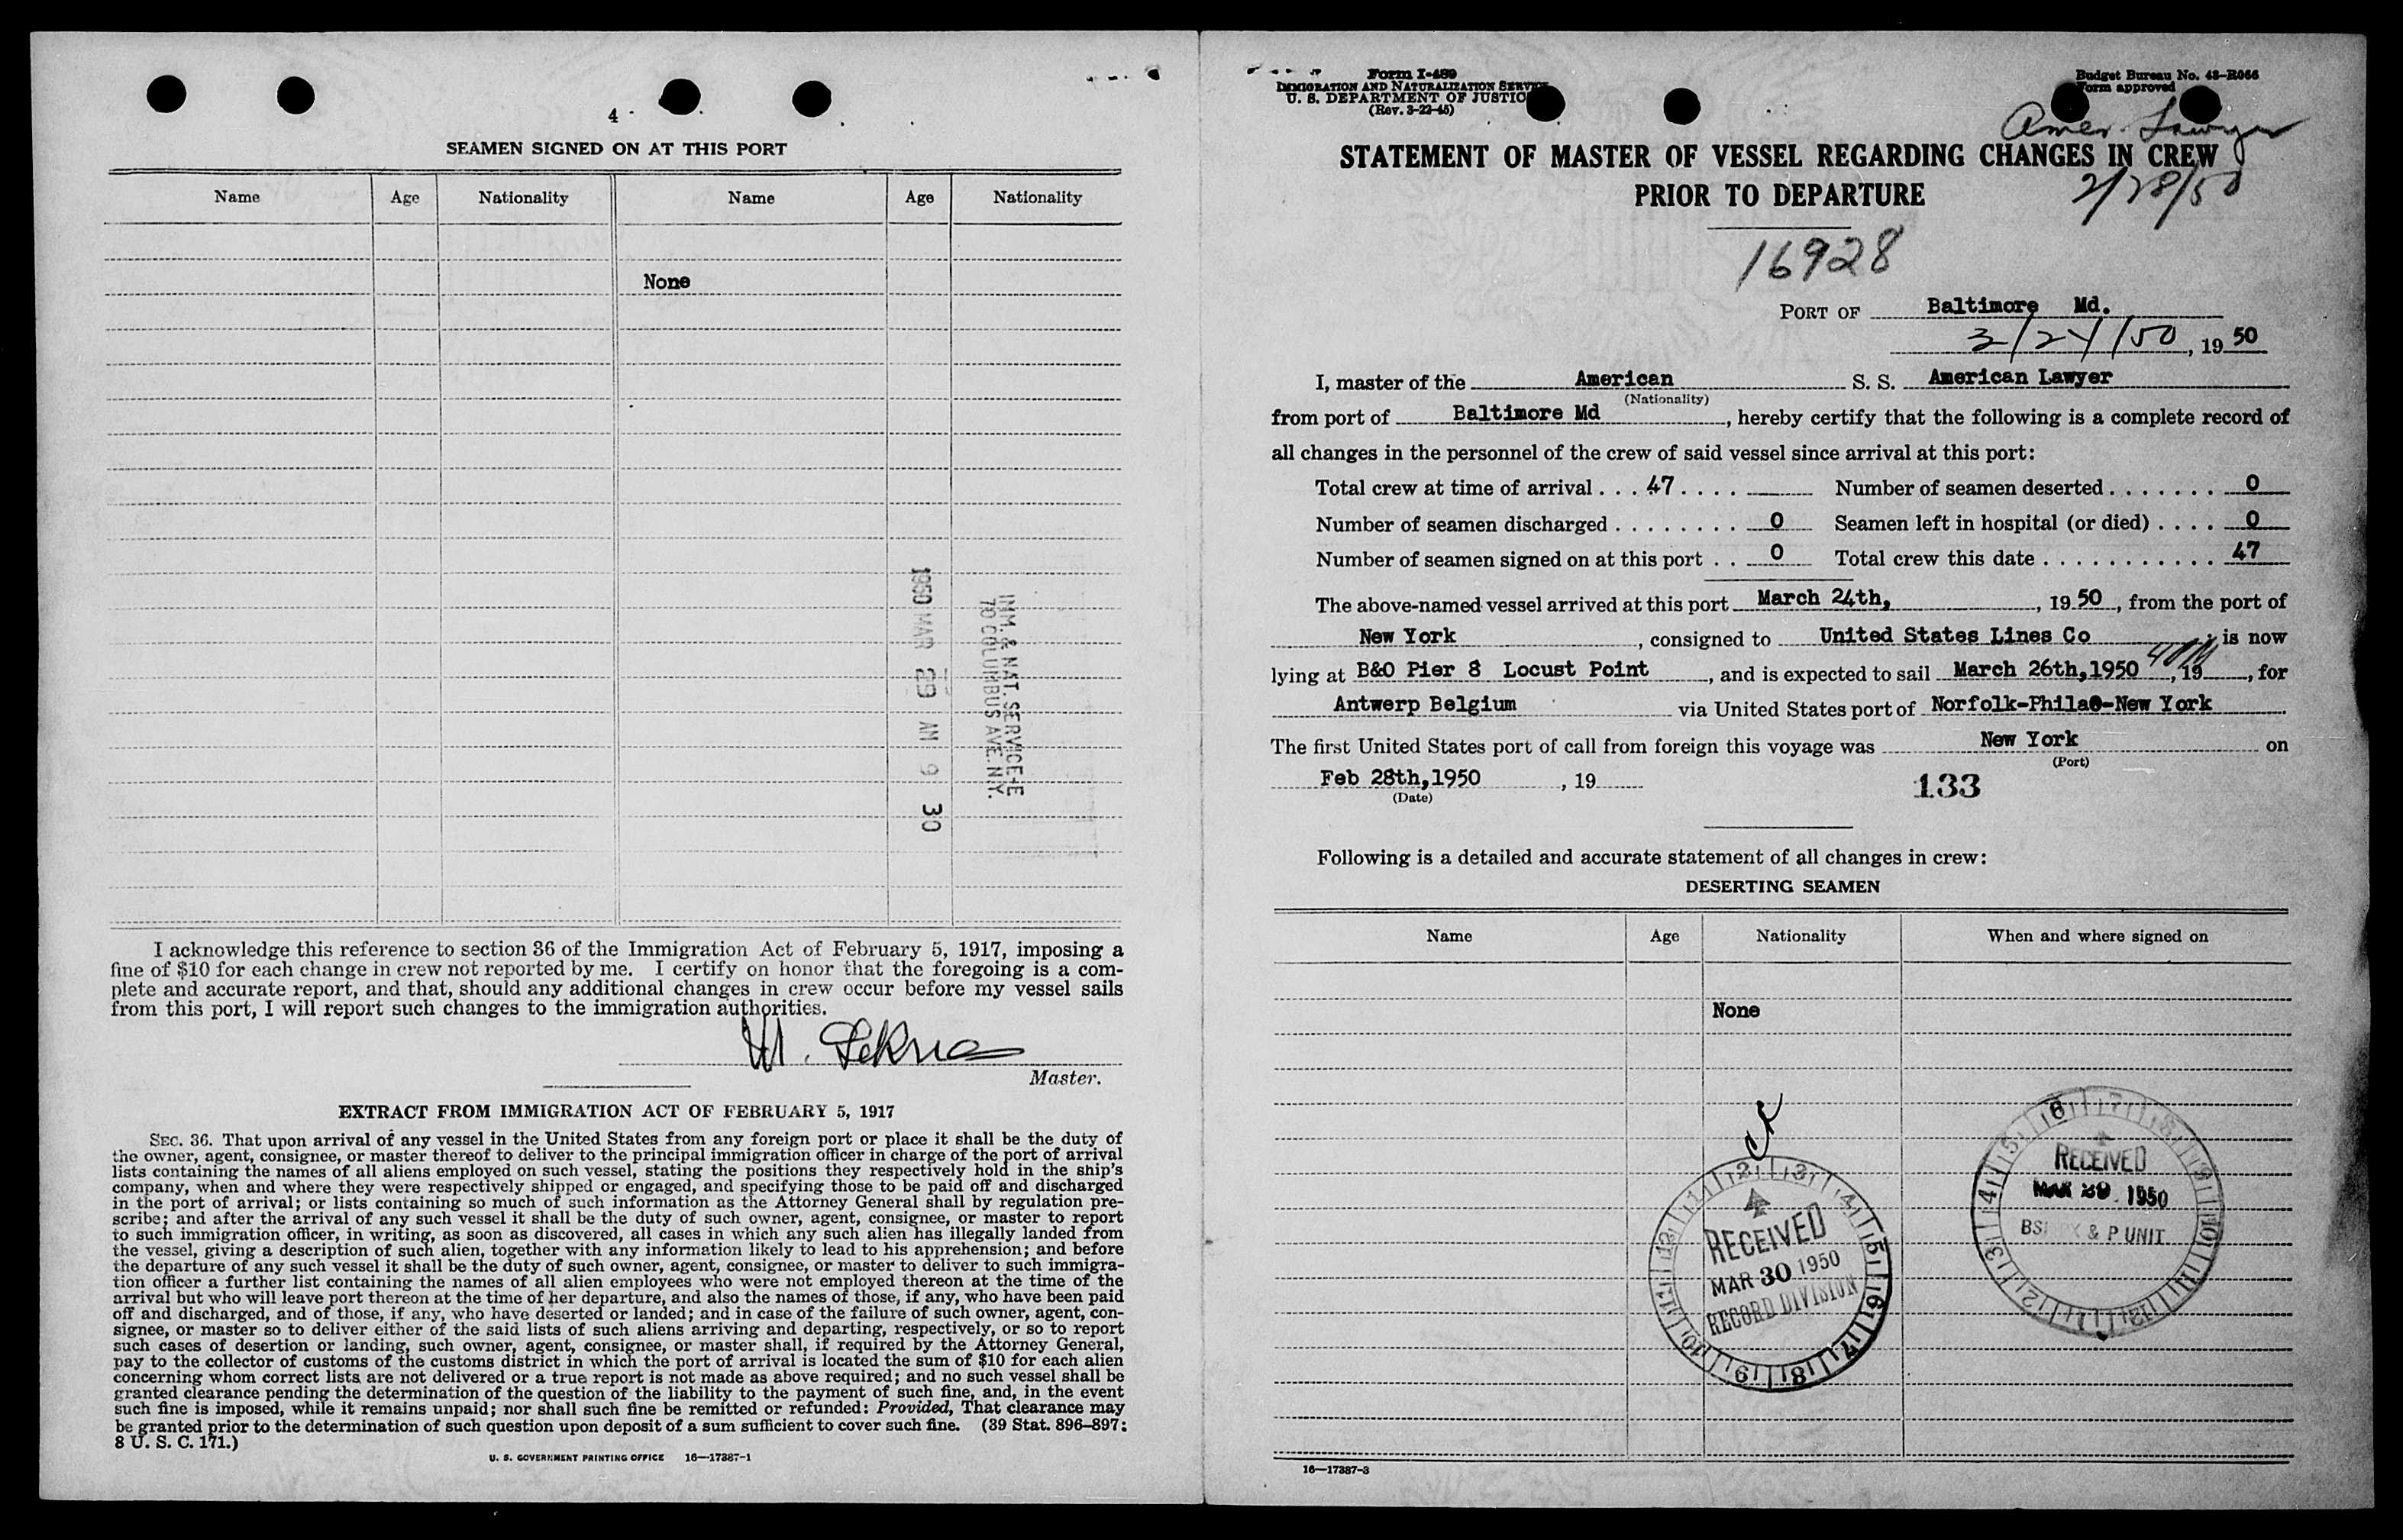 4
SEAMEN SIGNED ON AT THIS PORT
Name Age Nationality Name Age Nationality
None
1950 MAR 29 AM 9 30
IMM. & NAT. SERVICE-E
70 COLUMBUS AVE. N.Y.
I acknowledge this reference to section 36 of the Immigration Act of February 5, 1917, imposing a
fine of $10 for each change in crew not reported by me. I certify on honor that the foregoing is a com-
plete and accurate report, and that, should any additional changes in crew occur before my vessel sails
from this port, I will report such changes to the immigration authorities.
Master.
EXTRACT FROM IMMIGRATION ACT OF FEBRUARY 5, 1917
SEC. 36. That upon arrival of any vessel in the United States from any foreign port or place it shall be the duty of
the owner, agent, consignee, or master thereof to deliver to the principal immigration officer in charge of the port of arrival
lists containing the names of all aliens employed on such vessel, stating the positions they respectively hold in the ship's
company, when and where they were respectively shipped or engaged, and specifying those to be paid off and discharged
in the port of arrival; or lists containing so much of such information as the Attorney General shall by regulation pre-
scribe; and after the arrival of any such vessel it shall be the duty of such owner, agent, consignee, or master to report
to such immigration officer, in writing, as soon as discovered, all cases in which any such alien has illegally landed from
the vessel, giving a description of such alien, together with any information likely to lead to his apprehension; and before
the departure of any such vessel it shall be the duty of such owner, agent, consignee, or master to deliver to such immigra-
tion officer a further list containing the names of all alien employees who were not employed thereon at the time of the
arrival but who will leave port thereon at the time of her departure, and also the names of those, if any, who have been paid
off and discharged, and of those, if any, who have deserted or landed; and in case of the failure of such owner, agent, con-
signee, or master so to deliver either of the said lists of such aliens arriving and departing, respectively, or so to report
such cases of desertion or landing, such owner, agent, consignee, or master shall, if required by the Attorney General,
pay to the collector of customs of the customs district in which the port of arrival is located the sum of $10 for each alien
concerning whom correct lists are not delivered or a true report is not made as above required; and no such vessel shall be
granted clearance pending the determination of the question of the liability to the payment of such fine, and, in the event
such fine is imposed, while it remains unpaid; nor shall such fine be remitted or refunded: Provided, That clearance may
be granted prior to the determination of such question upon deposit of a sum sufficient to cover such fine. (39 Stat. 896–897;
8 U. S. C. 171.)
U. S. GOVERNMENT PRINTING OFFICE 16—17387-1
Form I-489
IMMIGRATION AND NATURALIZATION SERVICE
U. S. DEPARTMENT OF JUSTICE
(Rev. 3-22-45)
Budget Bureau No. 43–R066
Form approved
Amer. Lawyer
STATEMENT OF MASTER OF VESSEL REGARDING CHANGES IN CREW
PRIOR TO DEPARTURE
2/28/50
16928
PORT OF Baltimore Md.
3/24/50, 19 50
I, master of the American S. S. American Lawyer
(Nationality)
from port of Baltimore Md, hereby certify that the following is a complete record of
all changes in the personnel of the crew of said vessel since arrival at this port:
Total crew at time of arrival . . . 47 . . . . Number of seamen deserted . . . . . . . 0
Number of seamen discharged . . . . . . . . 0 Seamen left in hospital (or died) . . . . 0
Number of seamen signed on at this port . . 0 Total crew this date . . . . . . . . . . . 47
The above-named vessel arrived at this port March 24th, , 19 50, from the port of
New York, consigned to United States Lines Co ; is now
lying at B&O Pier 8 Locust Point, and is expected to sail March 26th,1950, 19 , for
Antwerp Belgium via United States port of Norfolk-Phila-New York
The first United States port of call from foreign this voyage was New York on
(Port)
Feb 28th,1950 , 19
(Date)
133
Following is a detailed and accurate statement of all changes in crew:
DESERTING SEAMEN
Name Age Nationality When and where signed on
None
RECEIVED
MAR 29 1950
& P UNIT
RECEIVED
MAR 30 1950
RECORD DIVISION
16—17387-3